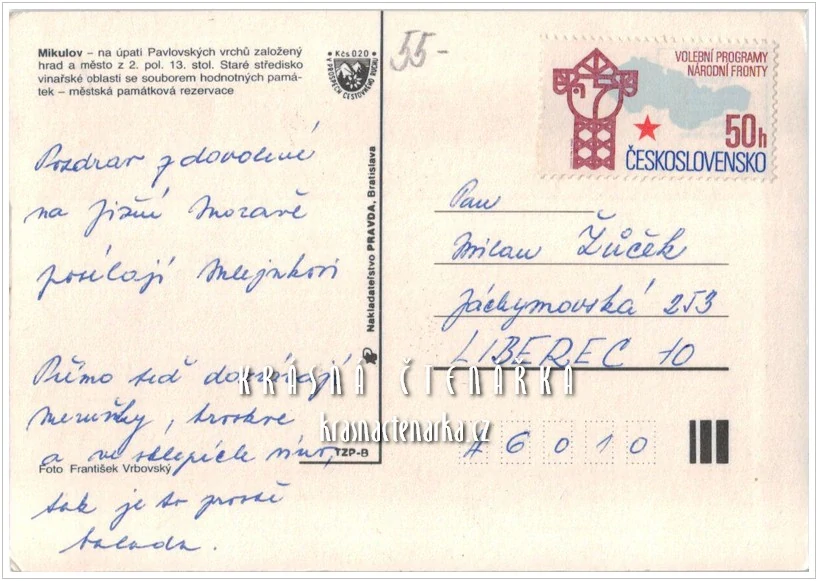 Mikulov – na úpatí Pavlovských vrchů založený
hrad a město z 2. pol. 13. stol. Staré středisko
vinařské oblasti se souborem hodnotných pamá-
tek – městská památková rezervace
Kčs 0,20
V PROSPĚCH CESTOVNÍHO RUCHU
55-
VOLEBNÍ PROGRAMY
NÁRODNÍ FRONTY
50h
ČESKOSLOVENSKO
Pozdrav z dovolené
na jižní Moravě
posílají Mlejnkovi
Přímo teď dozrávají
meruňky, broskve
a ve sklepích víno,
tak je to prostě
balada.
Foto František Vrbovský
Nakladatelství PRAVDA, Bratislava
TZP-B
Pan
Milan Žůček
Jáchymovská 253
LIBEREC 10
46010
KRÁSNÁ ČTENÁŘKA
krasnactenarka.cz